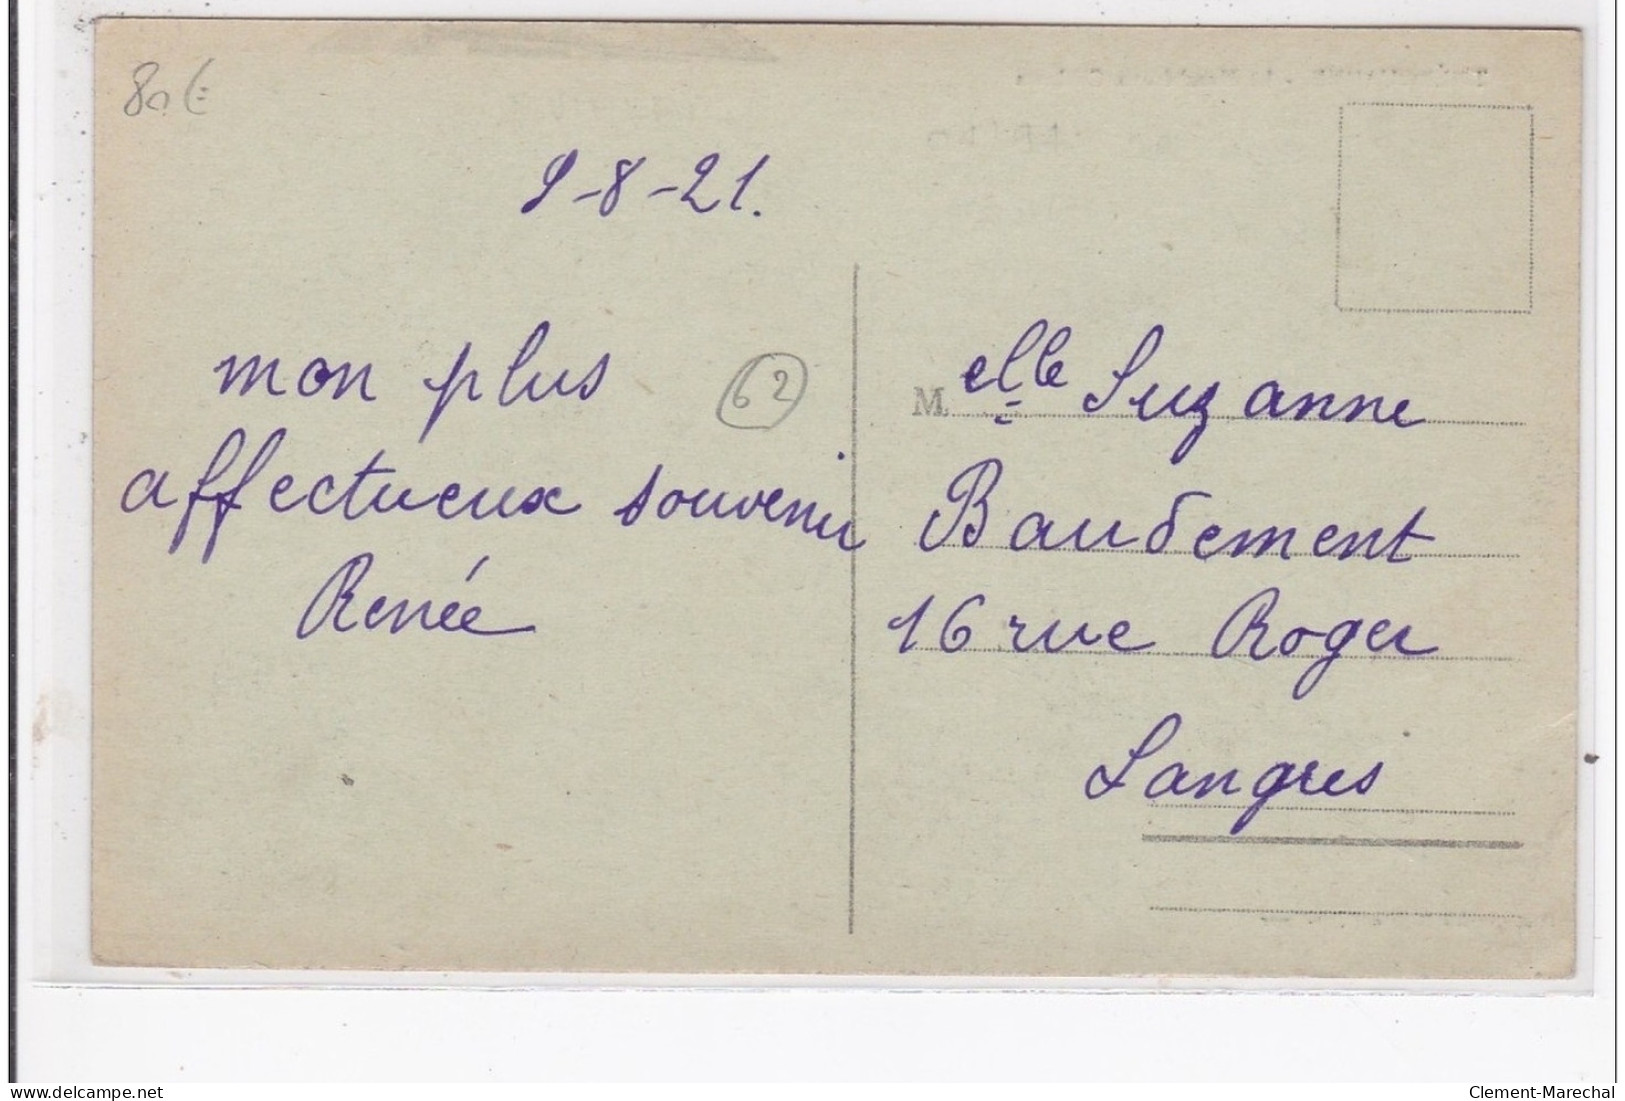 80€
9-8-21.
mon plus
affectueux souvenir
Renée
62
M elle Suzanne
Baudement
16 rue Roger
Langres
www.delcampe.net
Clement-Marechal